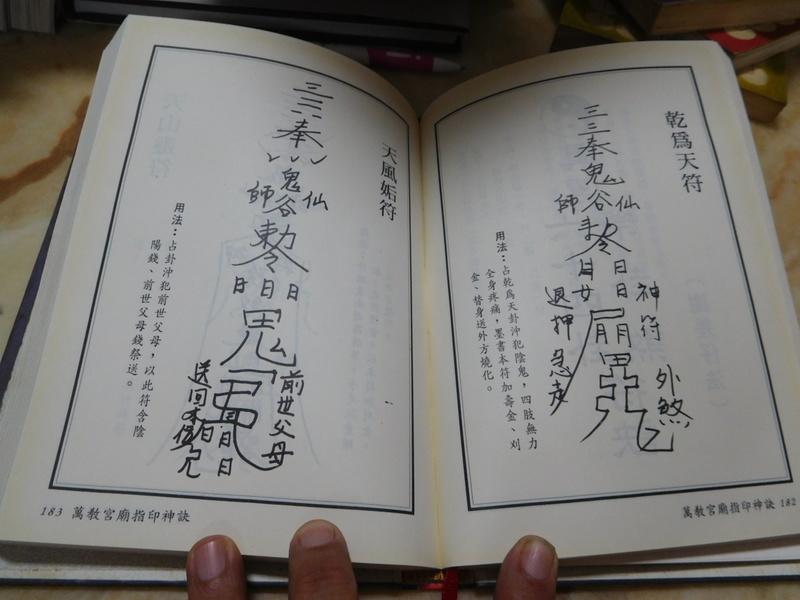 乾為天符
三三奉鬼谷仙師勅
日日
神符
外煞
退押
用法：占乾為天卦沖犯陰鬼，四肢無力
全身疼痛，墨書本符加壽金、刈
金、替身送外方燒化。
萬教宮廟指印神訣 182
天風姤符
奉
鬼谷仙師
勅
日日日
前世父母
送回本位
日日
用法：占卦沖犯前世父母，以此符含陰
陽錢、前世父母錢祭送。
183 萬教宮廟指印神訣